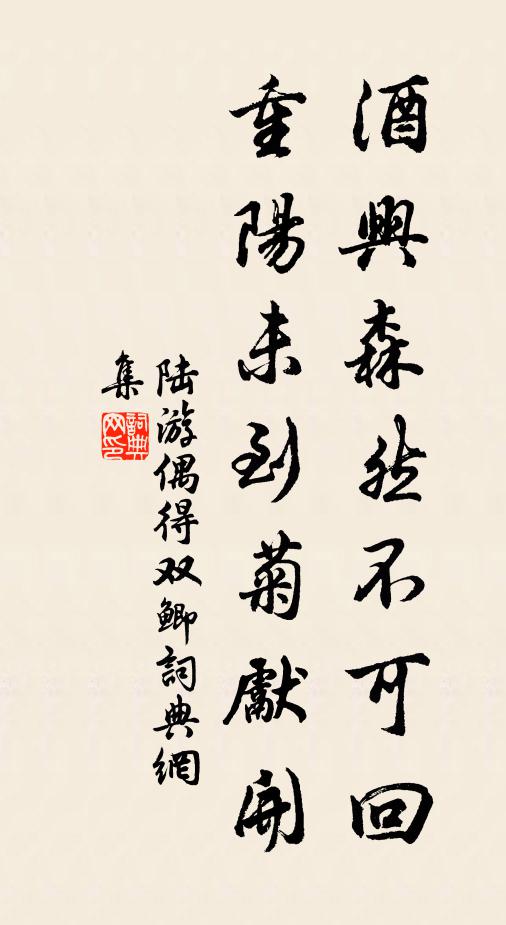 酒興森然不可回
重陽未到菊獻開
陆游偶得双鲫詞典網
集
詞典网印